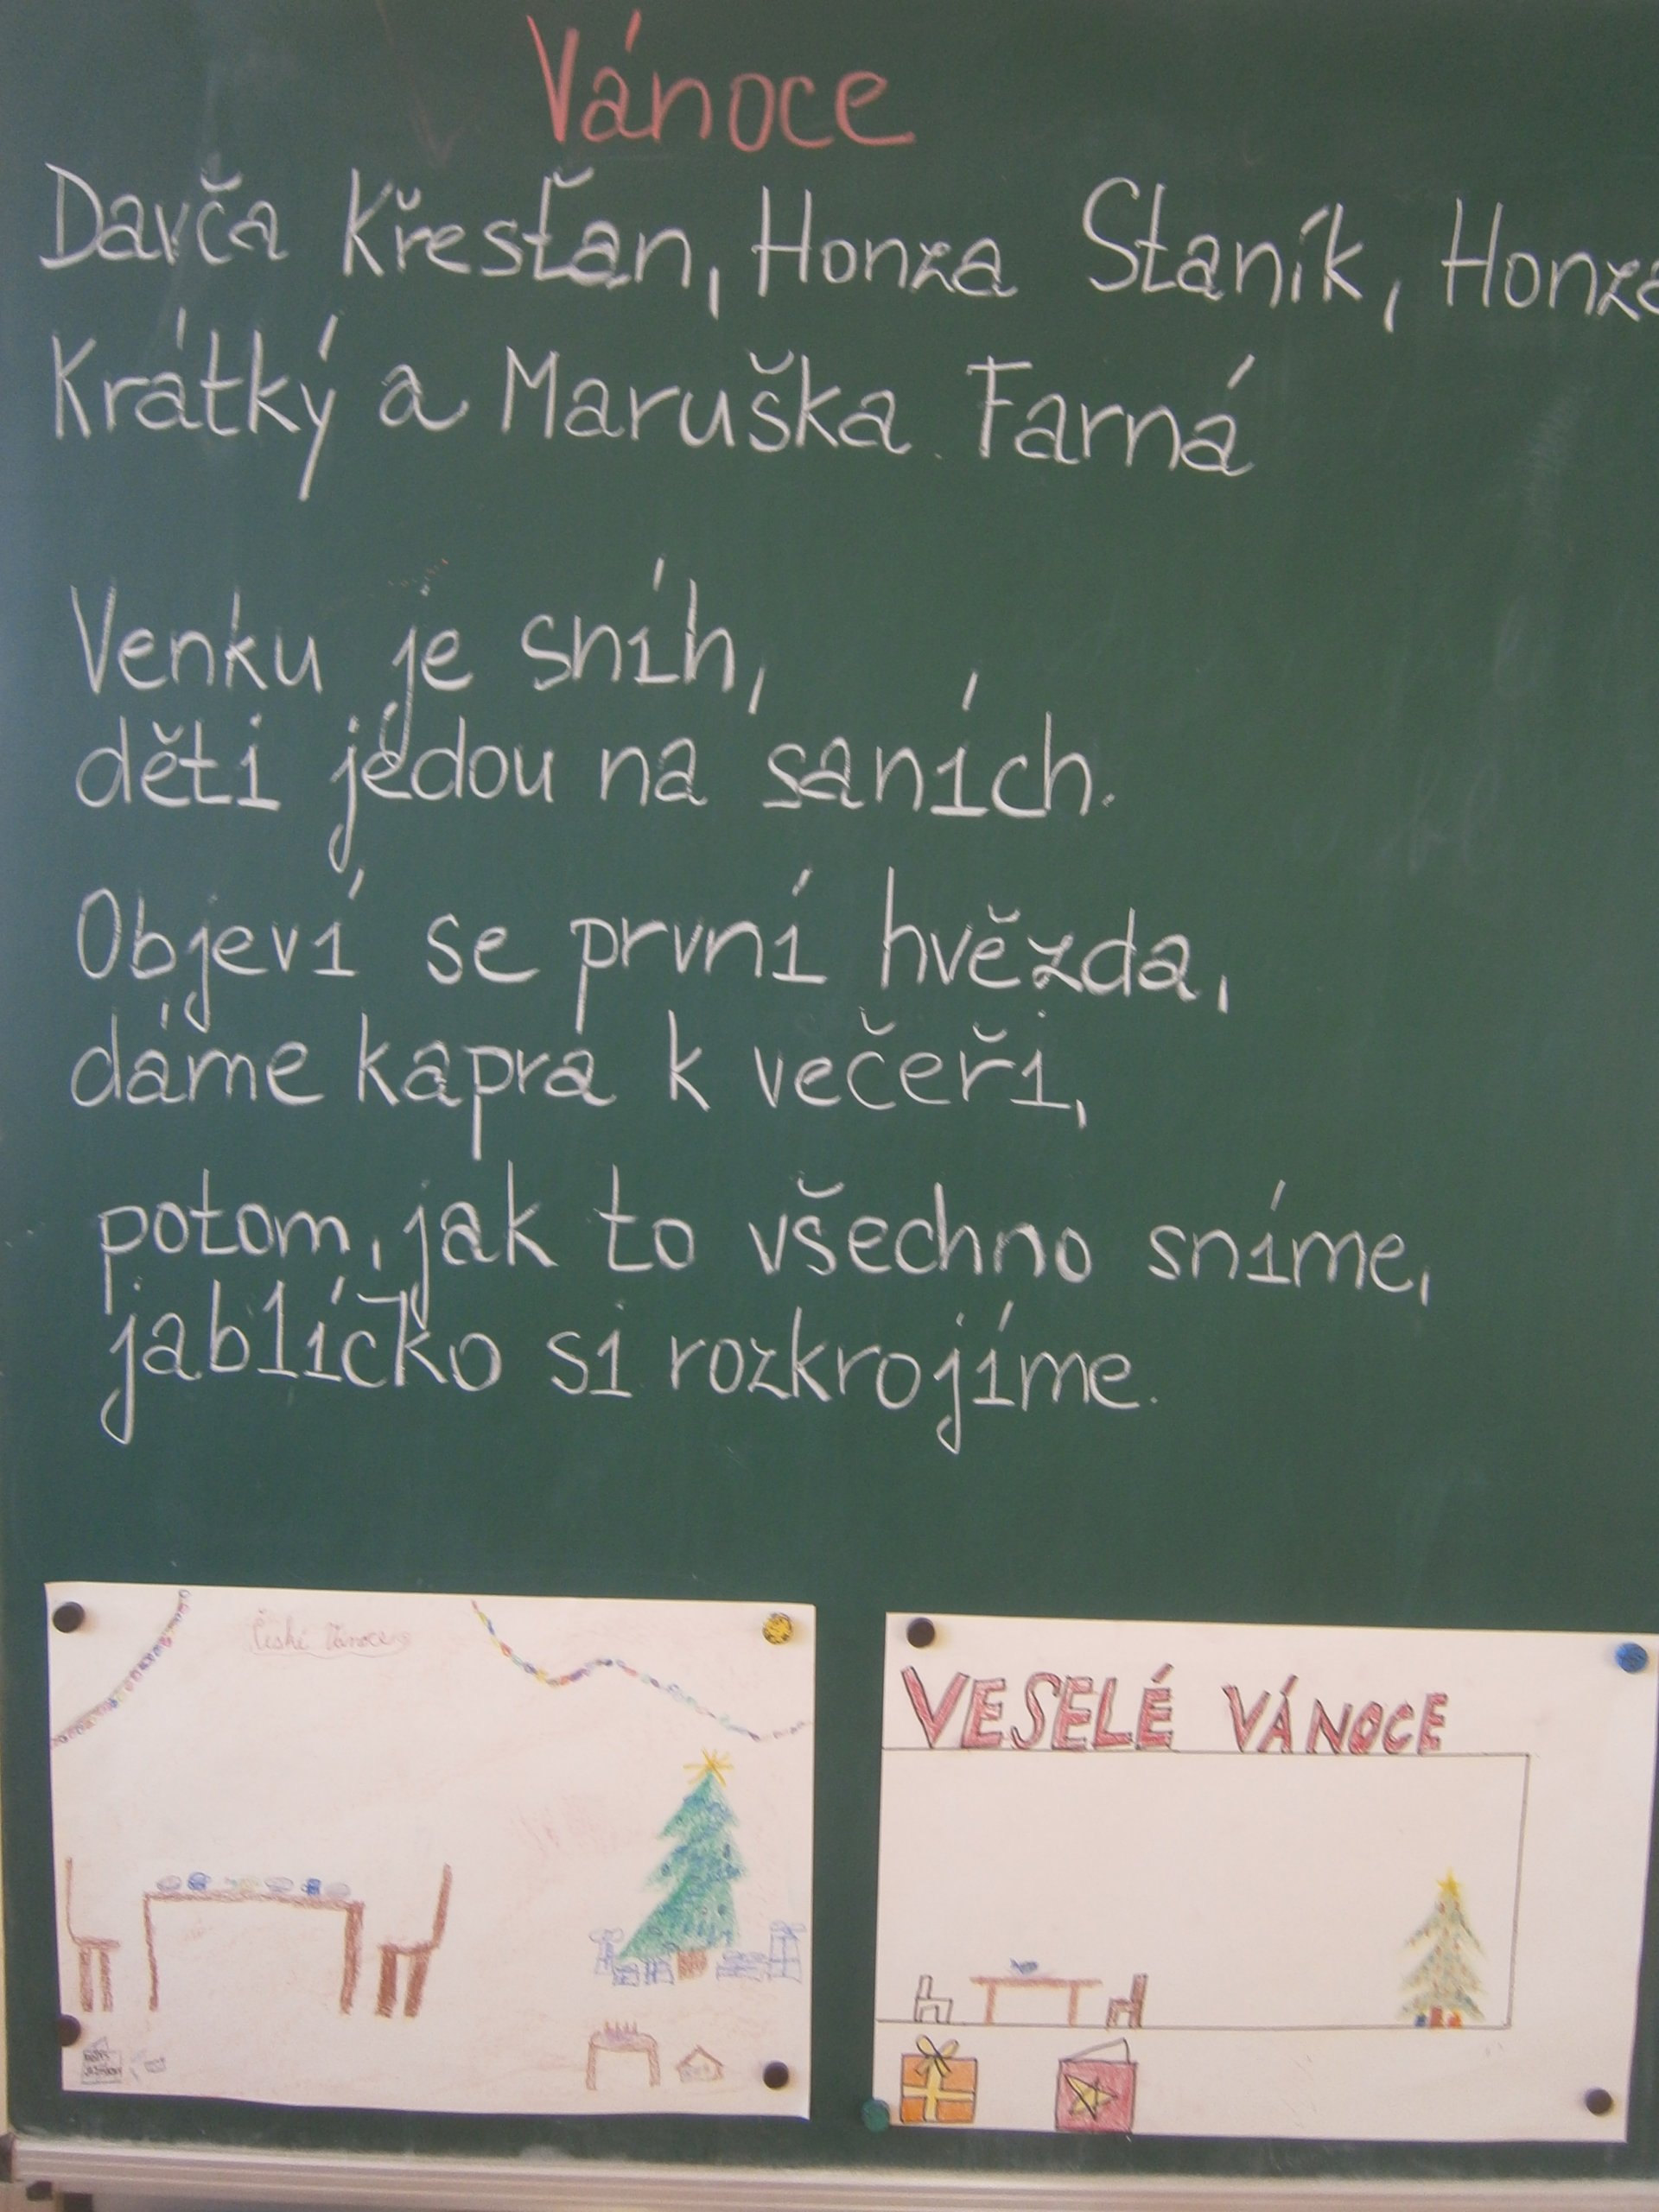 Vánoce
Davča Křesťan, Honza Staník, Honza
Krátký a Maruška Farná
Venku je sníh,
děti jedou na saních.
Objeví se první hvězda,
dáme kapra k večeři,
potom, jak to všechno sníme,
jablíčko si rozkrojíme.
České Vánoce
VESELÉ VÁNOCE